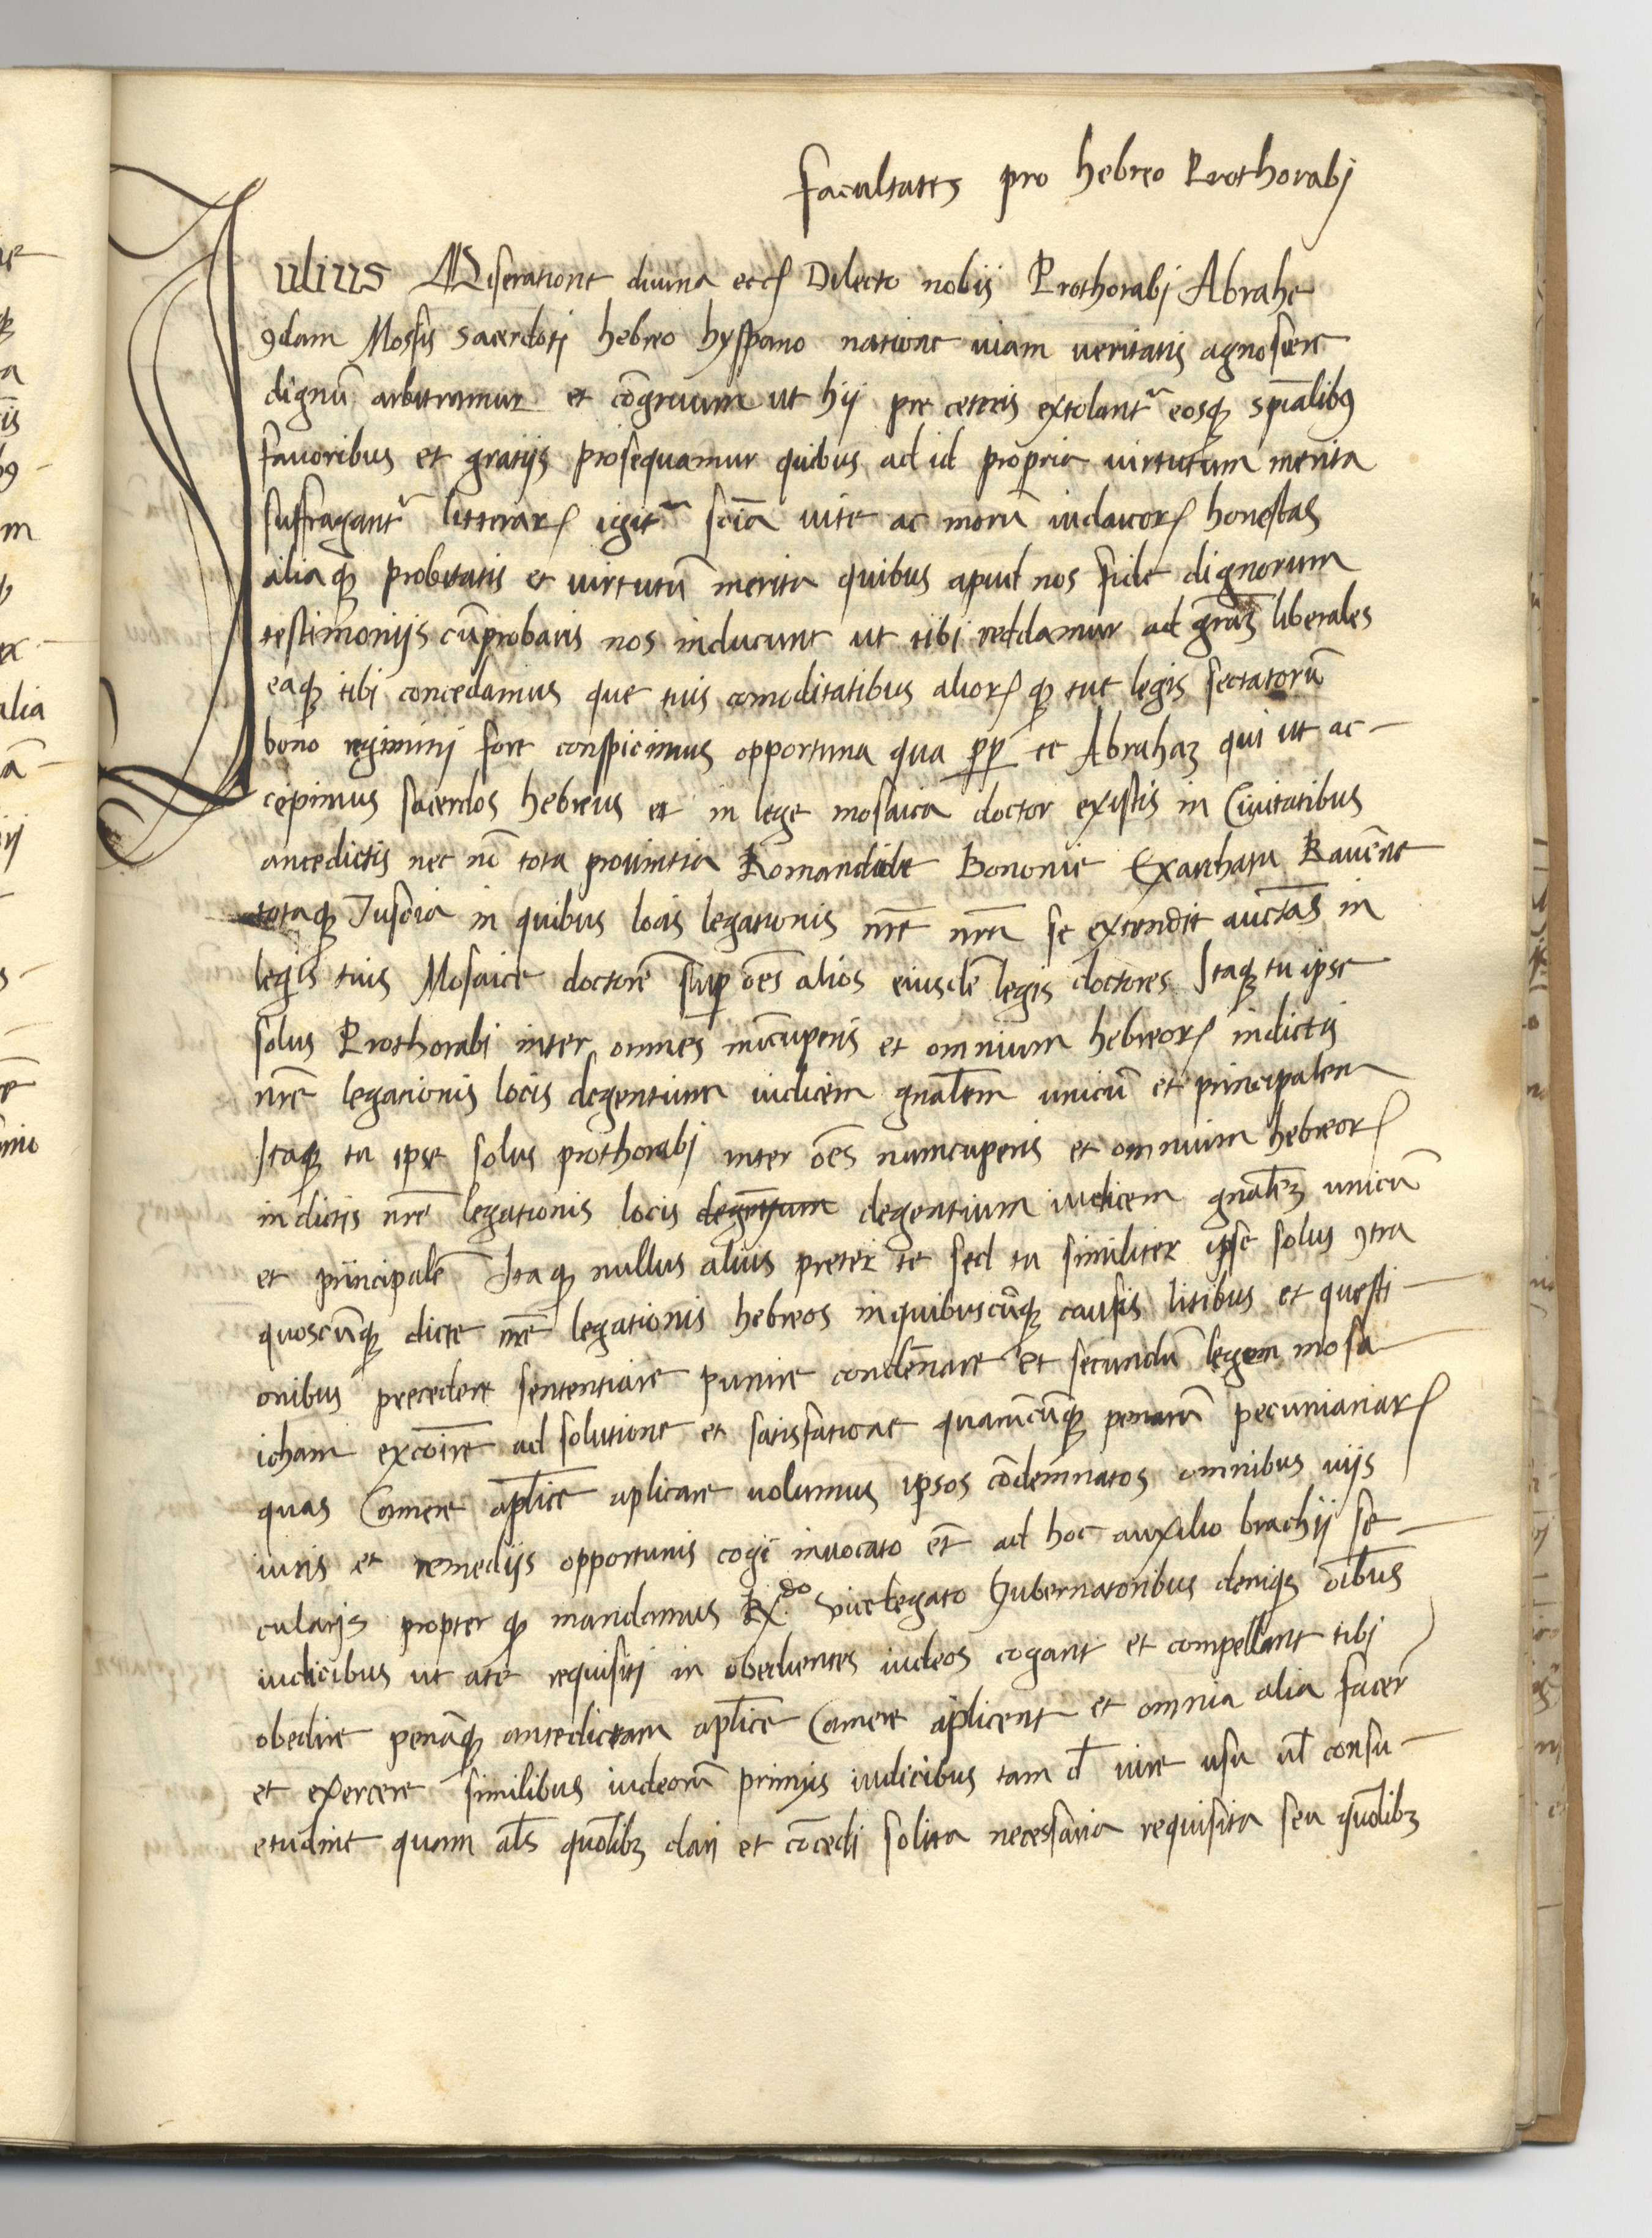 facultates pro hebreo Prothorabj
Iulius Miseratione diuina etcʒ Dilecto nobis Prothorabj Abrahe
ꝯdam Mossis sacerdotj hebreo hyspano natione uiam ueritatis agnoscere
dignū arbitramur et cōgruum ut hij pre ceteris extolantr eosqꝫ spīalibꝰ
fauoribus et gratijs prosequamur quibus ad id propria uirtutum merita
suffragantr litterarꝝ igitr sciā uite ac morū iudaicorꝝ honestas
aliaqꝫ probitatis et uirtutū merita quibus apud nos fide dignorum
testimonijs cūprobaris nos inducunt ut tibi reddamur ad grāʒ liberales
eaqꝫ tibj concedamus que tuis comoditatibus aliorꝝ qꝫ tue legis sectatorū
bono regiminj fore conspicimus opportuna qua ꝓp̄ te Abrahaʒ qui ut ac-
cepimus sacerdos hebreus et in lege mosaica doctor existis in Ciuitatibus
antedictis nec nō tota prouintia Romandiole Bononie Exarchatu Rauēne
totaqꝫ Tuscia in quibus locis legationis nr̄e nr̄a se extendit auctās in
legis tuis Mosaice doctorē suꝑ oēs alios eiusdē legis doctores Itaqꝫ tu ipse
solus Prothorabi inter omnes nūcuperis et omnium hebreorꝝ indictis
nr̄e legationis locis degentium iudicem gnālem unicū et principalem
Itaqꝫ tu ipse solus prothorabj inter oēs nuncuperis et omnium hebreorꝝ
indictis nr̄e legationis locis degentium degentium iudicem gnālēʒ unicū
et principalē Itaqꝫ nullus alius preter te sed tu similiter ipse solus ꝯtra
quoscūqꝫ dicte nr̄e legationis hebreos inquibuscūqꝫ causis litibus et questi-
onibus precedere sententiare punire condēnare et secundū legem mosa
icham excōire ad solutione et satisfatione quarūcūqꝫ penarū pecuniariarꝝ
quas Camere ap̄lice aplicare uolumus ipsos cōdemnatos omnibus uijs
iuris et remedijs opportunis cogi inuocato et̄ ad hoc auxilio brachij se-
cularis propter qꝫ mandamus Rx.do vicelegato Gubernatoribus deniqꝫ oībus
iudicibus ut a te requisiti in obedientes iudeos cogant et compellant tibj
obedire penāqꝫ antedictam ap̄lice Camere aplicent et omnia alia facer̄
et exercere similibus iudeorū primis iudicibus tam đ iure usu ul̄ consu-
etudine quam al̄s quōlibʒ dari et cōcedi solita necessaria requisita seu quōlibʒ